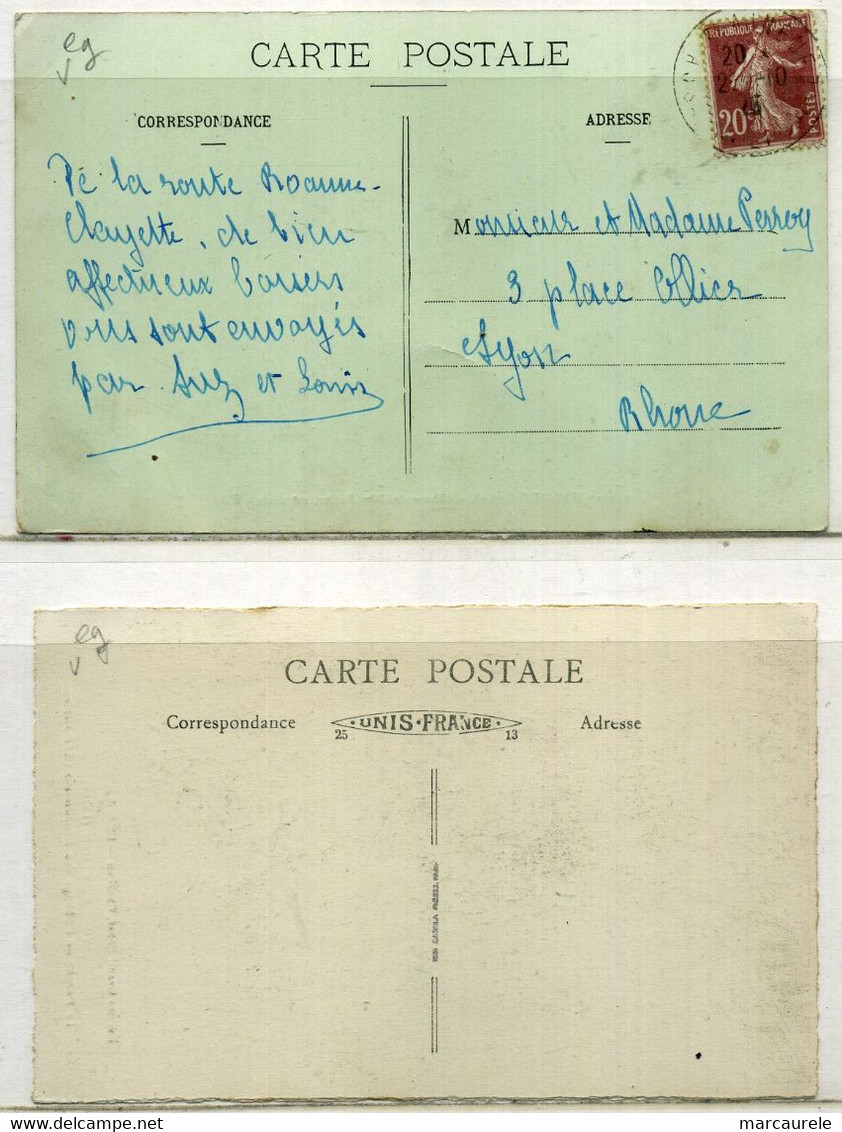 eg
v
CARTE POSTALE
CORRESPONDANCE
ADRESSE
REPUBLIQUE FRANÇAISE
POSTES
20c
20
Pé la route Roanne-
Clayette, de bien
affectueux baisers
vous sont envoyés
par Suz et Louis
Monsieur et Madame Perroy
3 place Ollier
Lyon
Rhone
eg
v
CARTE POSTALE
Correspondance
UNIS·FRANCE
25
13
Adresse
marcaurele